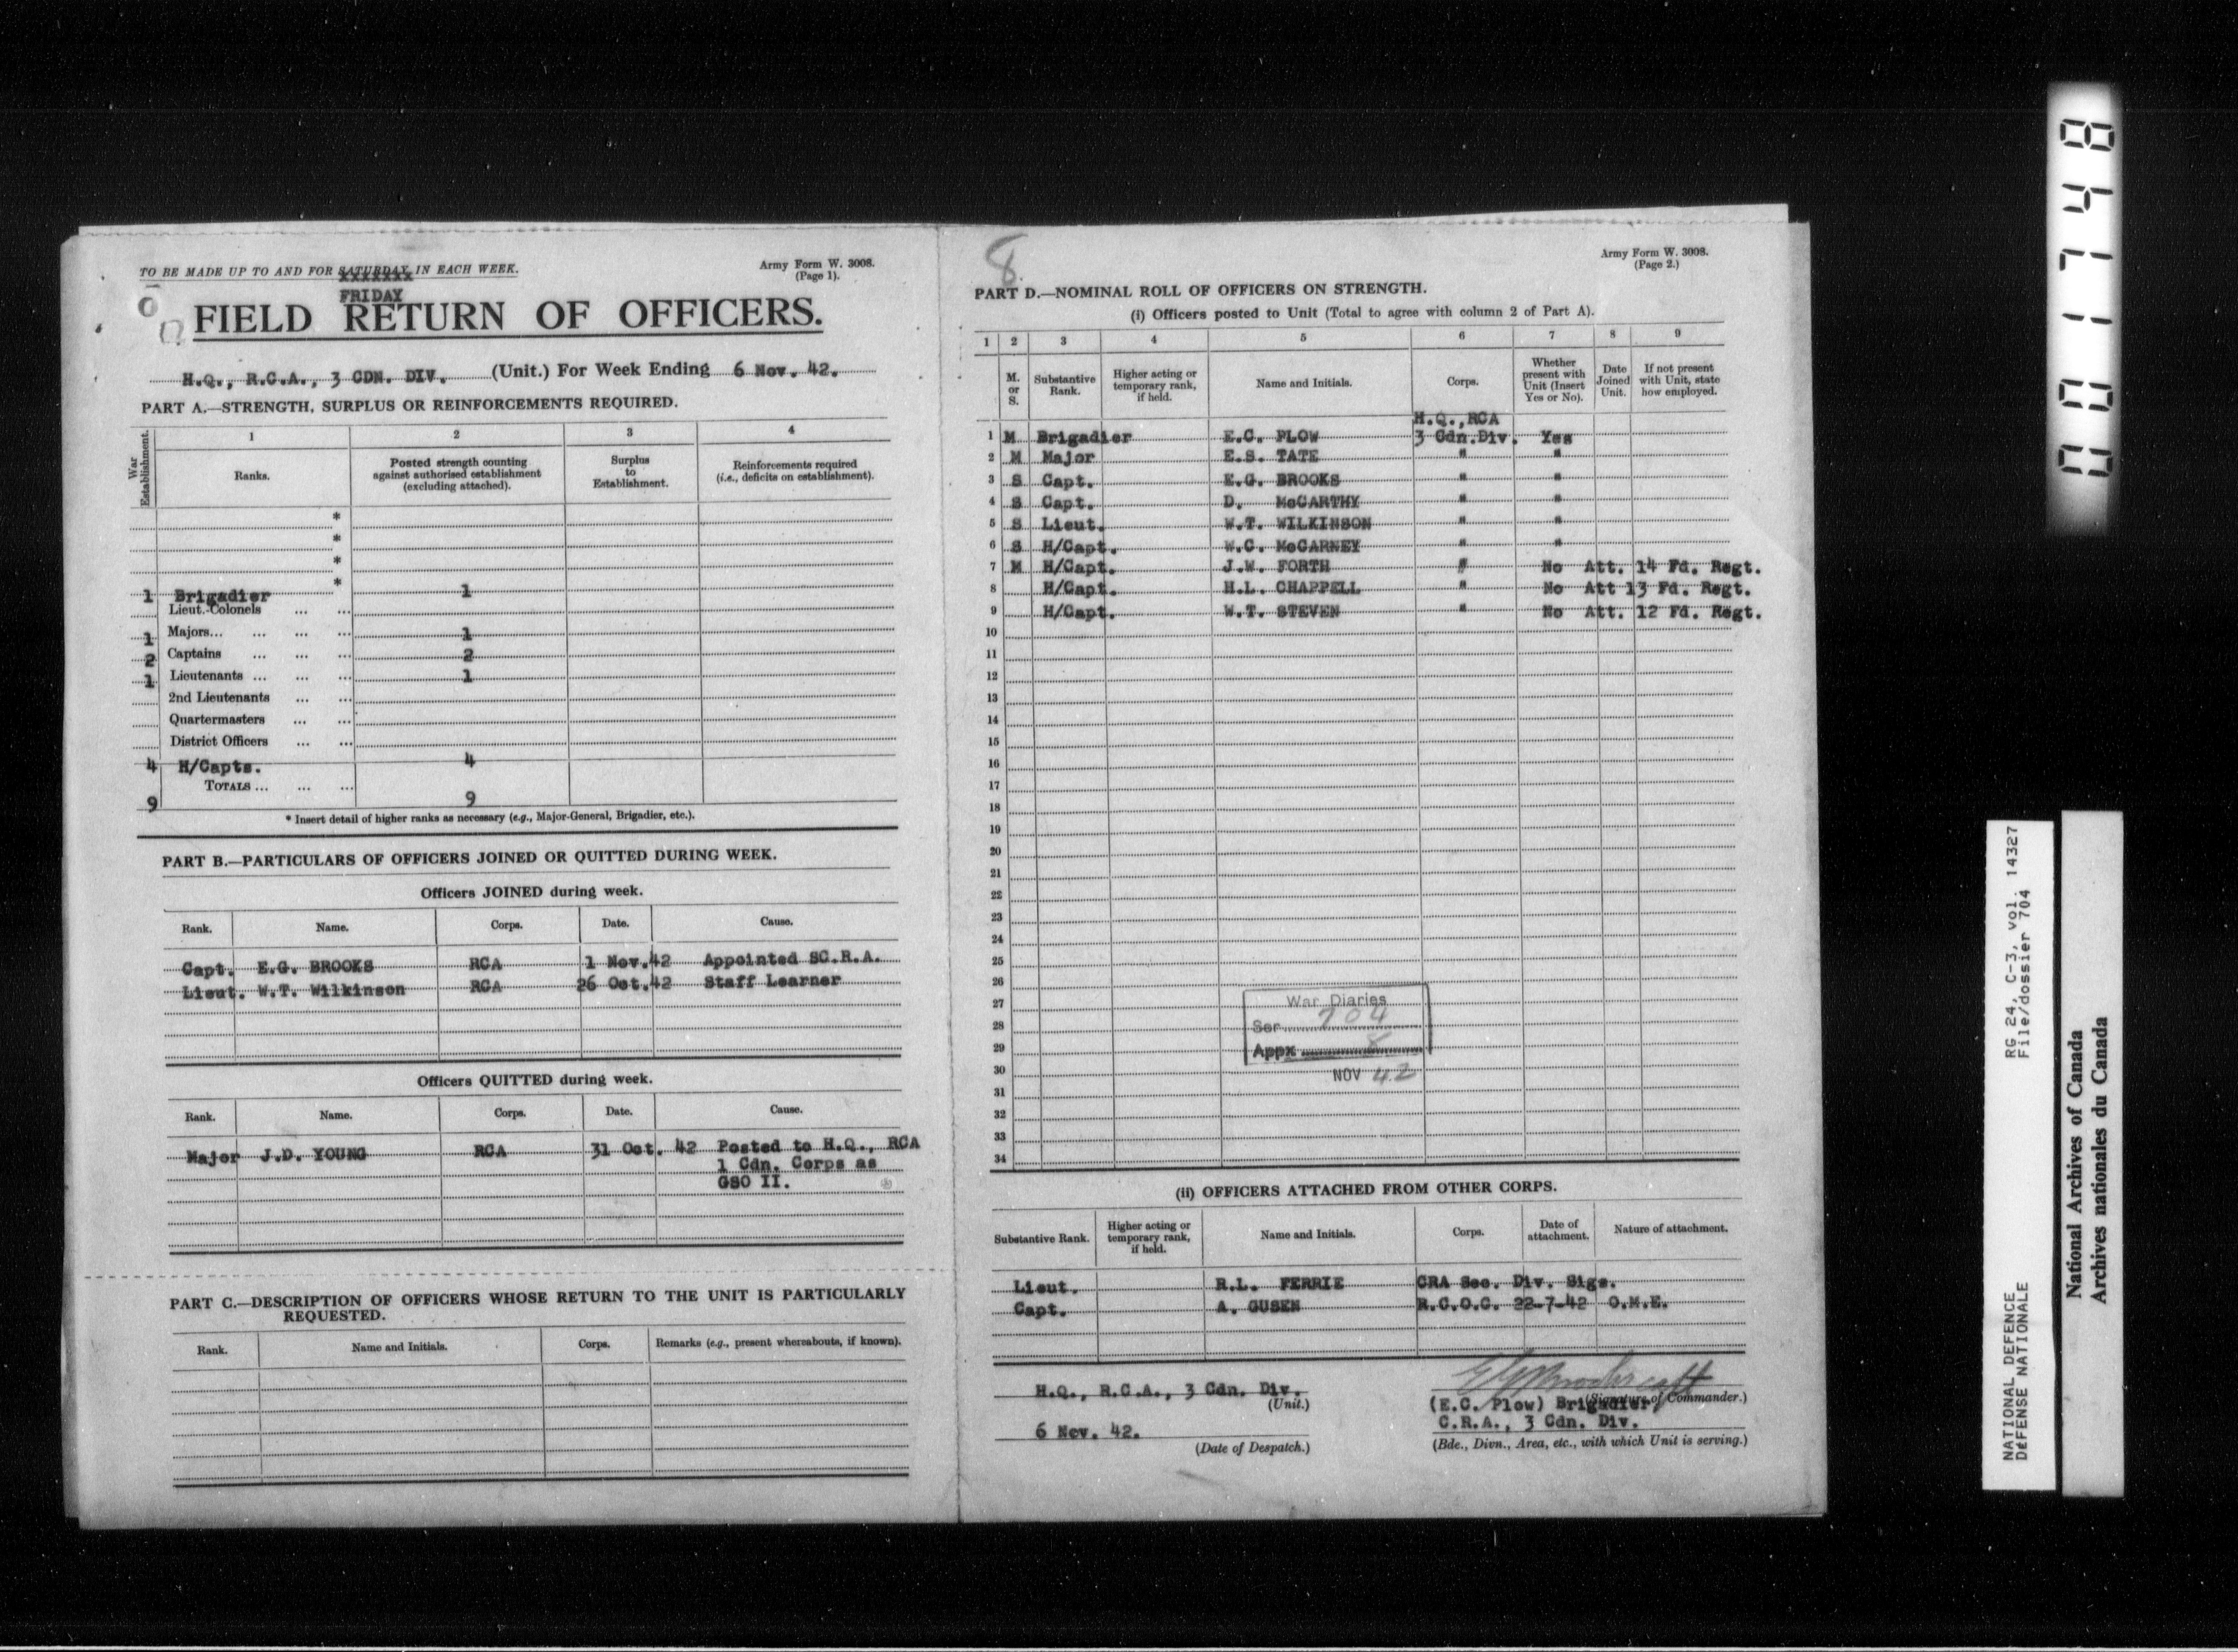 TO BE MADE UP TO AND FOR SATURDAY IN EACH WEEK.
FRIDAY
Army Form W. 3008.
(Page 1).
FIELD RETURN OF OFFICERS.
H.Q., R.C.A., 3 CDN. DIV. (Unit.) For Week Ending 6 Nov. 42.
PART A.—STRENGTH, SURPLUS OR REINFORCEMENTS REQUIRED.
War Establishment.
1 2 3 4
Ranks.
Posted strength counting against authorised establishment (excluding attached).
Surplus to Establishment.
Reinforcements required (i.e., deficits on establishment).
*
*
*
*
1 Brigadier 1
Lieut.-Colonels ... ...
1 Majors... ... ... ... 1
2 Captains ... ... ... 2
1 Lieutenants ... ... ... 1
2nd Lieutenants ... ...
Quartermasters ... ...
District Officers ... ...
4 H/Capts. 4
TOTALS ... ... ...
9 9
* Insert detail of higher ranks as necessary (e.g., Major-General, Brigadier, etc.).
PART B.—PARTICULARS OF OFFICERS JOINED OR QUITTED DURING WEEK.
Officers JOINED during week.
Rank. Name. Corps. Date. Cause.
Capt. E.G. BROOKS RCA 1 Nov.42 Appointed SC.R.A.
Lieut. W.T. Wilkinson RCA 26 Oct.42 Staff Learner
Officers QUITTED during week.
Rank. Name. Corps. Date. Cause.
Major J.D. YOUNG RCA 31 Oct. 42 Posted to H.Q., RCA
1 Cdn. Corps as
GSO II.
PART C.—DESCRIPTION OF OFFICERS WHOSE RETURN TO THE UNIT IS PARTICULARLY
REQUESTED.
Rank. Name and Initials. Corps. Remarks (e.g., present whereabouts, if known).
8.
Army Form W. 3008.
(Page 2.)
PART D.—NOMINAL ROLL OF OFFICERS ON STRENGTH.
(i) Officers posted to Unit (Total to agree with column 2 of Part A).
1 2 3 4 5 6 7 8 9
M. or S.
Substantive Rank.
Higher acting or temporary rank, if held.
Name and Initials.
Corps.
Whether present with Unit (Insert Yes or No).
Date Joined Unit.
If not present with Unit, state how employed.
H.Q.,RCA
1 M Brigadier E.C. PLOW 3 Cdn.Div. Yes
2 M Major E.S. TATE " "
3 S Capt. E.G. BROOKS " "
4 S Capt. D. McCARTHY " "
5 S Lieut. W.T. WILKINSON " "
6 S H/Capt. W.C. McCARNEY " "
7 M H/Capt. J.W. FORTH " No Att. 14 Fd. Regt.
8 H/Capt. H.L. CHAPPELL " No Att 13 Fd. Regt.
9 H/Capt. W.T. STEVEN " No Att. 12 Fd. Regt.
10
11
12
13
14
15
16
17
18
19
20
21
22
23
24
25
26
27
28
29
30
31
32
33
34
War Diaries
Ser 704
Appx 8
NOV 42
(ii) OFFICERS ATTACHED FROM OTHER CORPS.
Substantive Rank.
Higher acting or temporary rank, if held.
Name and Initials.
Corps.
Date of attachment.
Nature of attachment.
Lieut. R.L. FERRIE CRA Sec. Div. Sigs.
Capt. A. GUSEN R.C.O.C. 22-7-42 O.M.E.
H.Q., R.C.A., 3 Cdn. Div.
(Unit.)
6 Nov. 42.
(Date of Despatch.)
(Signature of Commander.)
(E.C. Plow) Brigadier
C.R.A., 3 Cdn. Div.
(Bde., Divn., Area, etc., with which Unit is serving.)
001748
RG 24, C-3, vol. 14327
File/dossier 704
NATIONAL DEFENCE
DÉFENSE NATIONALE
National Archives of Canada
Archives nationales du Canada